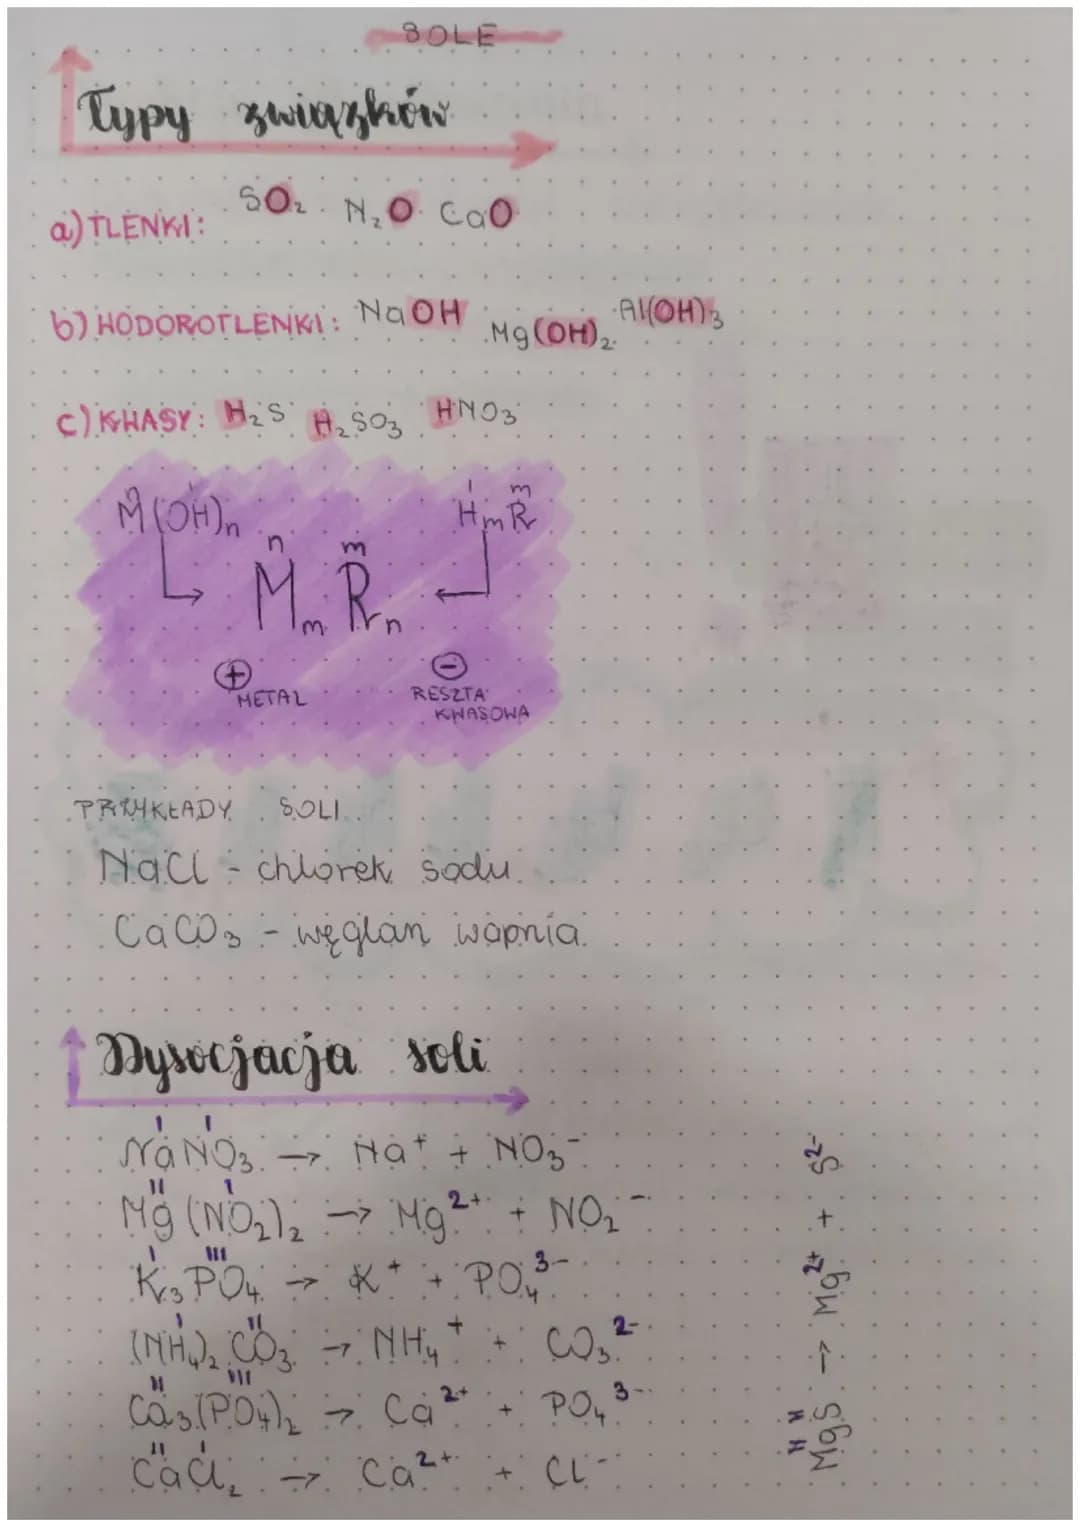 SOLE
Typy związków
a) TLENKI: SO₂ N₂O CaO
b) HODOROTLENKI: NaOH Mg(OH)₂ Al(OH)₃
c) KWASY: H₂S H₂SO₃ HNO₃
n I m
M(OH)n HmR
n m
Mm Rn
⊕ ⊖
METAL RESZTA
KWASOWA
PRZYKŁADY SOLI
NaCl - chlorek sodu
CaCO₃ - węglan wapnia
Dysocjacja soli
I I
NaNO₃ → Na⁺ + NO₃⁻
II I
Mg(NO₂)₂ → Mg²⁺ + NO₂⁻
I III
K₃PO₄ → K⁺ + PO₄³⁻
I II
(NH₄)₂CO₃ → NH₄⁺ + CO₃²⁻
II III
Ca₃(PO₄)₂ → Ca²⁺ + PO₄³⁻
II I
CaCl₂ → Ca²⁺ + Cl⁻
II II
MgS → Mg²⁺ + S²⁻